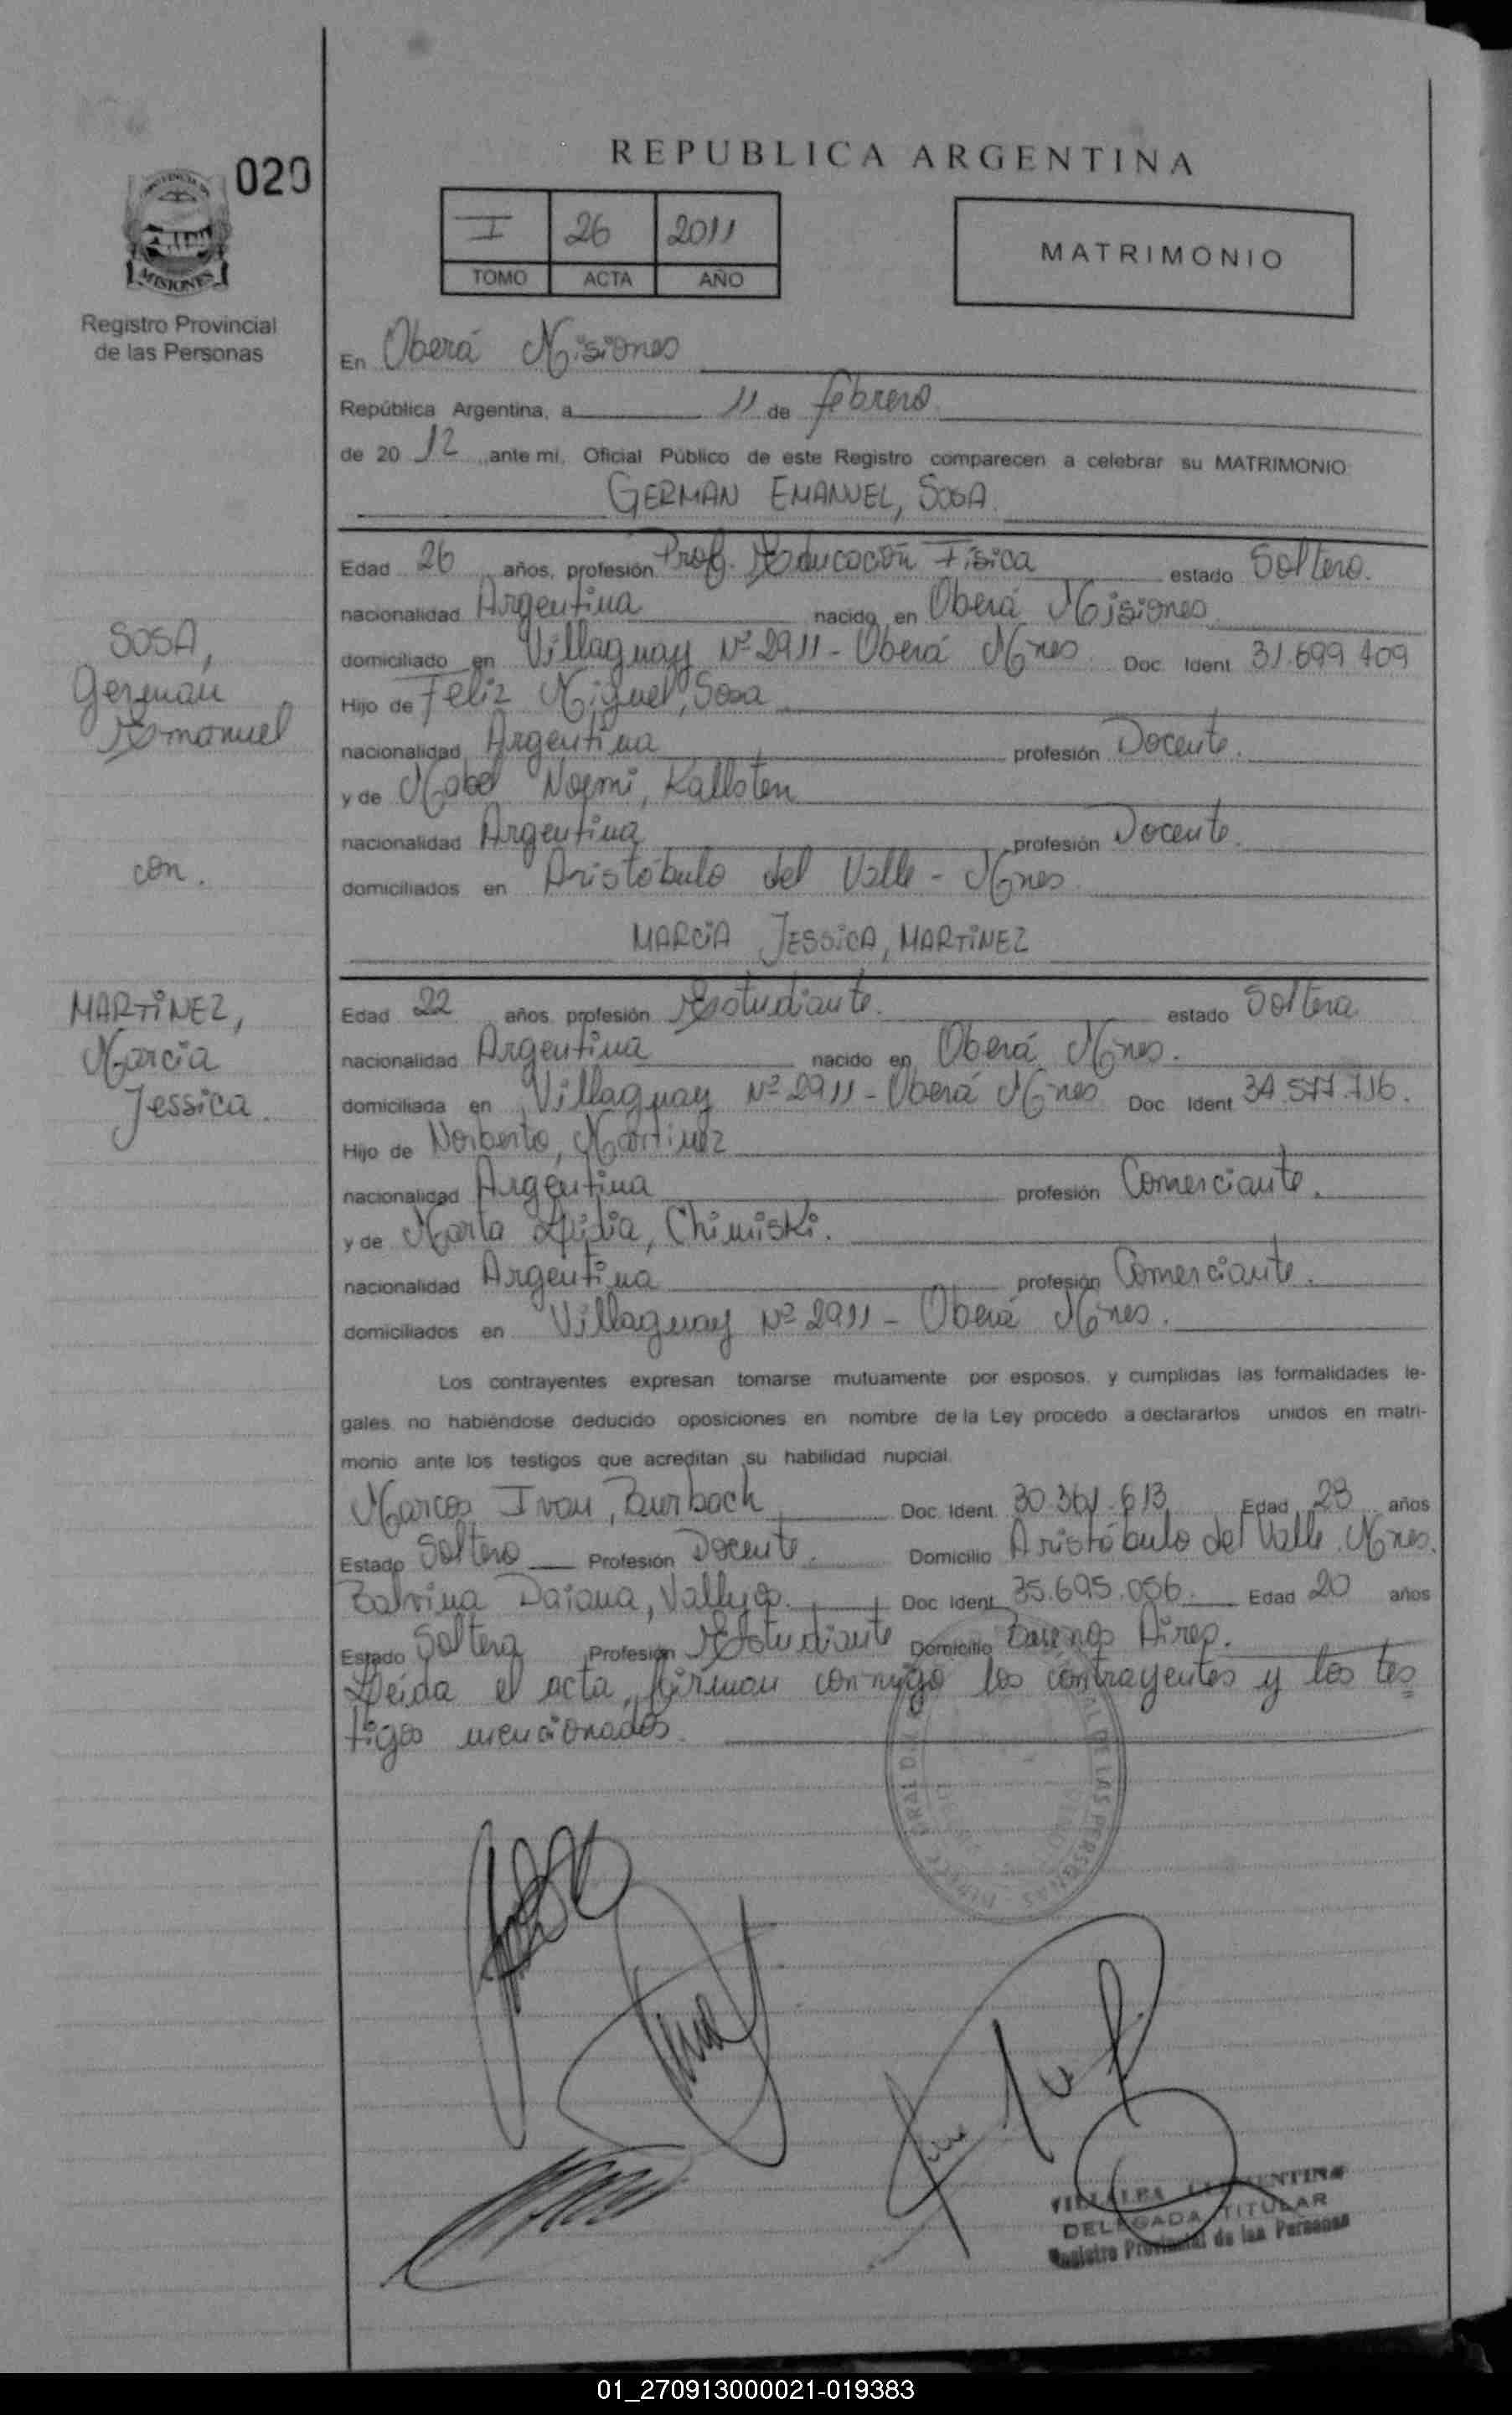 029
REPUBLICA ARGENTINA
I 26 2011
TOMO ACTA AÑO
MATRIMONIO
MISIONES
Registro Provincial
de las Personas
En Oberá Misiones
República Argentina, a 11 de febrero
de 20 12 ante mi, Oficial Público de este Registro comparecen a celebrar su MATRIMONIO
GERMAN EMANUEL, SOSA
Edad 26 años, profesión Prof. Educación Física estado Soltero.
nacionalidad Argentina nacido en Oberá Misiones
domiciliado en Villaguay Nº 2911 - Oberá Mnes. Doc. Ident 31.699.409
Hijo de Feliz Miguel, Sosa
nacionalidad Argentina profesión Docente.
y de Mabel Noemi, Kallsten
nacionalidad Argentina profesión Docente.
domiciliados en Aristóbulo del Valle - Mnes.
SOSA,
German
Emanuel
con.
MARTINEZ,
Marcia
Jessica.
MARCIA JESSICA, MARTINEZ
Edad 22 años profesión Estudiante. estado Soltera
nacionalidad Argentina nacido en Oberá Mnes.
domiciliada en Villaguay Nº 2911 - Oberá Mnes Doc Ident 34.577.716.
Hijo de Norberto, Martinez
nacionalidad Argentina profesión Comerciante.
y de Marta Lidia, Chimiski.
nacionalidad Argentina profesión Comerciante.
domiciliados en Villaguay Nº 2911 - Oberá Mnes.
Los contrayentes expresan tomarse mutuamente por esposos, y cumplidas las formalidades le-
gales, no habiéndose deducido oposiciones en nombre de la Ley procedo a declararlos unidos en matri-
monio ante los testigos que acreditan su habilidad nupcial.
Marcos Ivan, Burbach Doc. Ident 30.361.613 Edad 28 años
Estado Soltero Profesión Docente. Domicilio Aristóbulo del Valle Mnes.
Daiana, Vallejos. Doc Ident 35.695.056. Edad 20 años
Estado Soltera Profesión Estudiante Domicilio Buenos Aires.
Leida el acta, firman conmigo los contrayentes y los tes
tigos mencionados.
DE LAS PERSONAS
VILLALBA CLEMENTINA
DELEGADA TITULAR
Registro Provincial de las Personas
01_270913000021-019383